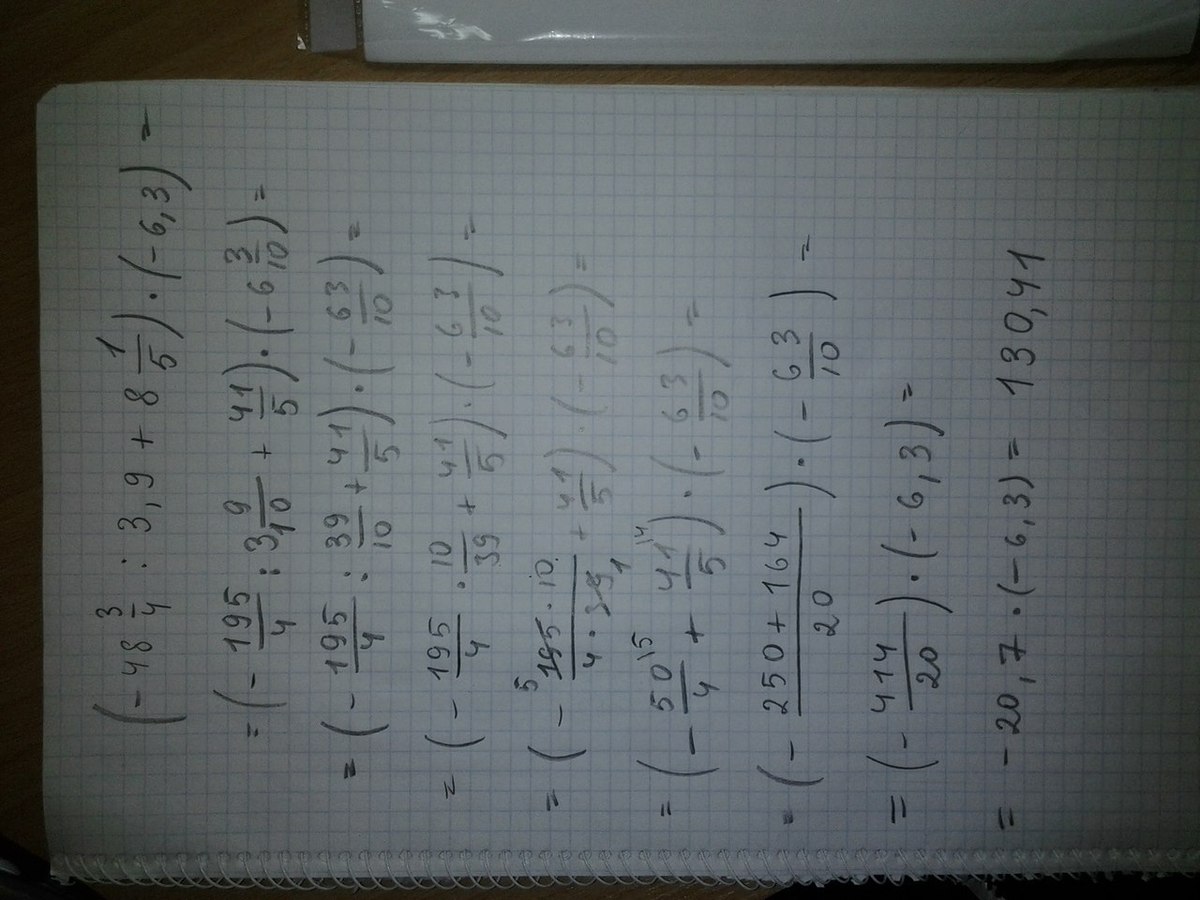 (-48 3/4 : 3,9 + 8 1/5) · (-6,3) =
= (- 195/4 : 3 9/10 + 41/5) · (-6 3/10) =
= (- 195/4 : 39/10 + 41/5) · (- 63/10) =
= (- 195/4 · 10/39 + 41/5) · (- 63/10) =
= (- 5 195 · 10 / 4 · 39 1 + 41/5) · (- 63/10) =
= (- 50/4 \5 + 41/5 \4) · (- 63/10) =
= (- 250 + 164 / 20) · (- 63/10) =
= (- 414/20) · (-6,3) =
= -20,7 · (-6,3) = 130,41